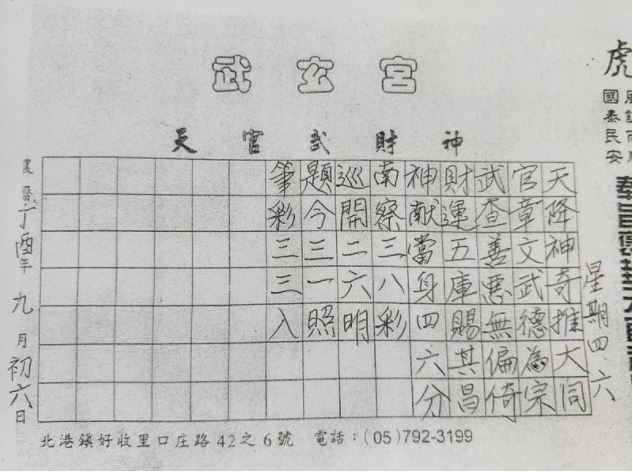 武玄宮
天官武財神
星期四.六
天降神奇推大同
官章文武德為宗
武查善惡無偏倚
財運五庫賜其昌
神献當身四六分
南察三八彩
巡開二六明
題今三一照
筆彩三三入
農曆丁酉年九月初六日
北港鎮好收里口庄路42之6號 電話：(05)792-3199
虎
國泰民安